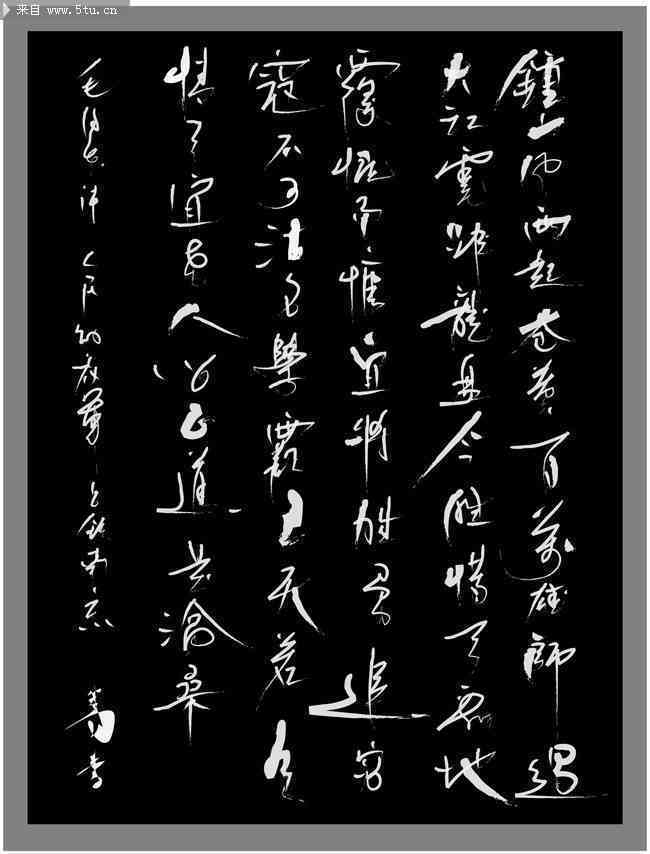 来自 www.5tu.cn
鍾山风雨起苍黄百万雄師過
大江虎踞龍盘今胜惜天翻地
覆慨而慷宜将胜勇追穷
寇不可沽名學霸王天若有
情天宜老人间正道是滄桑
毛泽东诗 人民解放軍占領南京 書